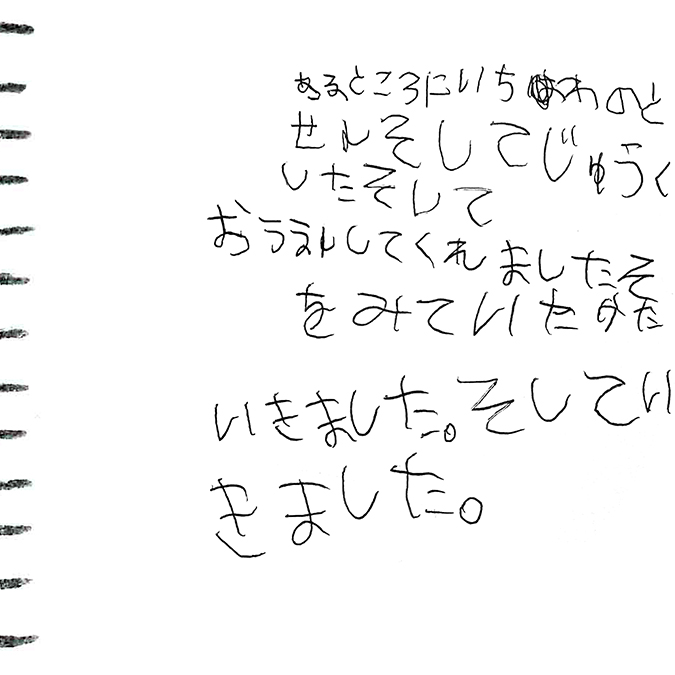 あるところにいちわのと
せんそしてじゅうく
したそして
おうえんしてくれましたそ
をみていたかた
いきました。そしてい
きました。